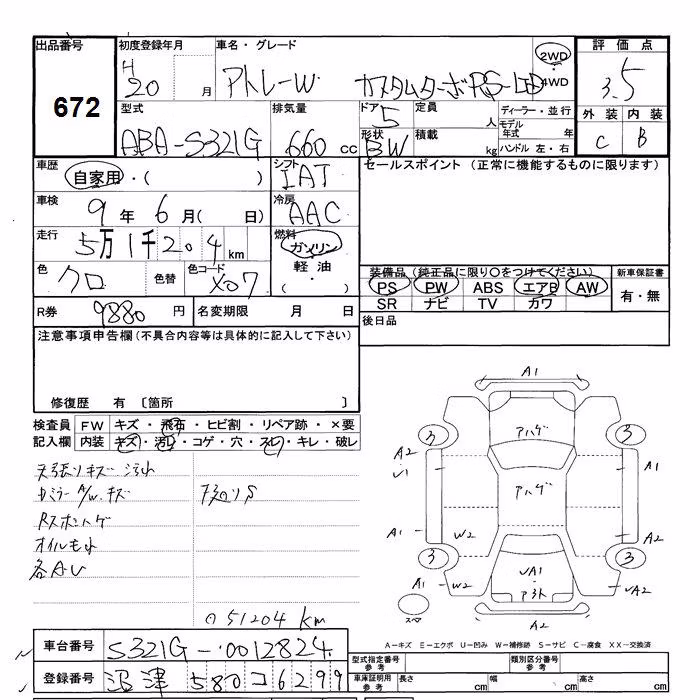 出品番号 初度登録年月 車名・グレード 評価点
672 H 20 月 アトレーW カスタムターボRS-LTD 2WD 4WD 3.5
外装 内装
C B
型式 排気量 ドア 定員 ディーラー・並行
ABA-S321G 660 cc 5 人 モデル年式 年
形状 積載 ハンドル 左・右
BW kg
車歴 シフト セールスポイント (正常に機能するものに限ります)
自家用・( ) IAT
車検 9年 6月( 日) 冷房 AAC
走行 5万1千204 km 燃料 ガソリン・軽油・( )
色 クロ 色替 色コード X07
装備品 (純正品に限り○をつけてください) 新車保証書
PS PW ABS エアB AW 有・無
SR ナビ TV カワ
R券 9880 円 名変期限 月 日
後日品
注意事項申告欄(不具合内容等は具体的に記入して下さい)
修復歴 有 〔箇所 〕
検査員 FW キズ・飛石・ヒビ割・リペア跡・×要
記入欄 内装 キズ・汚れ・コゲ・穴・スレ・キレ・破レ
天張りキズ 汚れ
カミラー A/W.キズ
Rスポハゲ
オイルもれ
各A・U
51204 km
A1
アハゲ
3 3
A2 A1
アハゲ
A1 W2 A2
3 3
A1 W2 A2
A2
A-キズ E-エクボ U-凹み W-補修跡 S-サビ C-腐食 XX-交換済
車台番号 S321G-0012824
登録番号 沼津 580 コ 6299
型式指定番号 参考 類別区分番号 参考
車庫証明用 参考 長さ cm 幅 cm 高さ cm